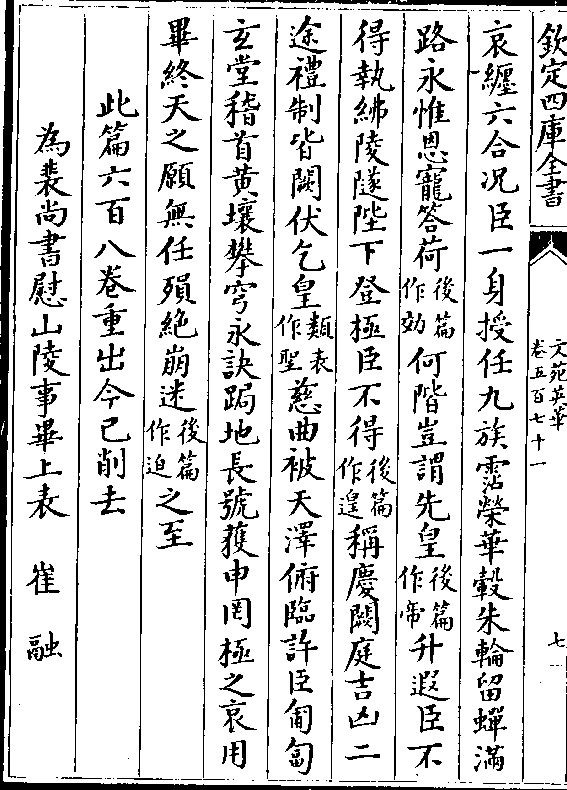 欽定四庫全書
文苑英華
卷五百七十一
七
哀纏六合況臣一身授任九族霑榮華轂朱輪留蟬滿
路永惟恩寵答荷後篇作効何階豈謂先皇後篇作帝升遐臣不
得執紼陵隧陛下登極臣不得後篇作遑稱慶闕庭吉凶二
途禮制皆闕伏乞皇類表作聖慈曲被天澤俯臨許臣匍匐
玄堂稽首黃壤攀穹永訣跼地長號獲申罔極之哀用
畢終天之願無任殞絶崩迷後篇作迫之至
此篇六百八卷重出今已削去
為裴尚書慰山陵事畢上表　崔融